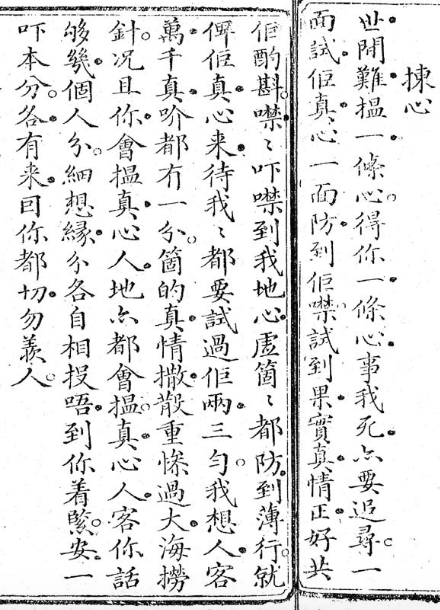 揀心
世間難揾一條心得你一條心事我死亦要追尋一
面試佢真心一面防到佢噤試到果實真情正好共
佢酌斟噤〻吓噤到我地心虛箇〻都防到薄行就
俾佢真心来待我〻都要試過佢兩三勻我想人客
萬千真吤都有一分箇的真情撒散重慘過大海撈
針况且你會揾真心人地亦都會揾真心人客你話
够幾個人分細想緣分各自相投唔到你着緊安一
吓本分各有来因你都切勿羨人